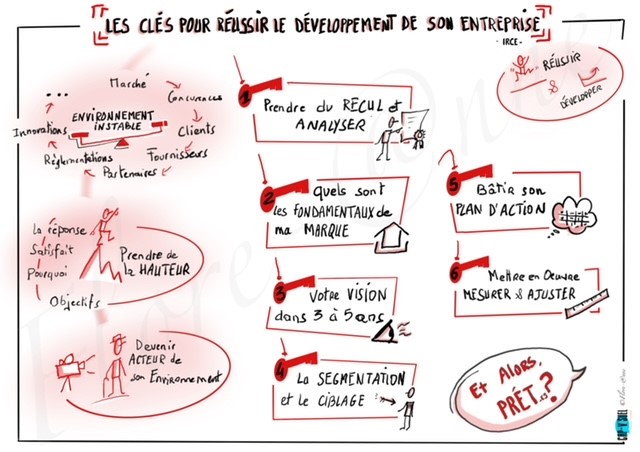 LES CLÉS POUR RÉUSSIR LE DÉVELOPPEMENT DE SON ENTREPRISE
- IRCE -
RÉUSSIR
&
DÉVELOPPER
...
Marché
Concurrences
Clients
Fournisseurs
Partenaires
Réglementations
Innovations
ENVIRONNEMENT
INSTABLE
La réponse
Satisfait
Pourquoi
Objectifs
Prendre de
la HAUTEUR
Devenir
ACTEUR de
son Environnement
1
Prendre du RECUL et
ANALYSER
2
Quels sont
les FONDAMENTAUX de
ma MARQUE
3
Votre VISION
dans 3 à 5 ans
4
La SEGMENTATION
et le CIBLAGE
5
Bâtir son
PLAN D'ACTION
6
Mettre en Oeuvre
MESURER & AJUSTER
Et ALORS,
PRÊT..?